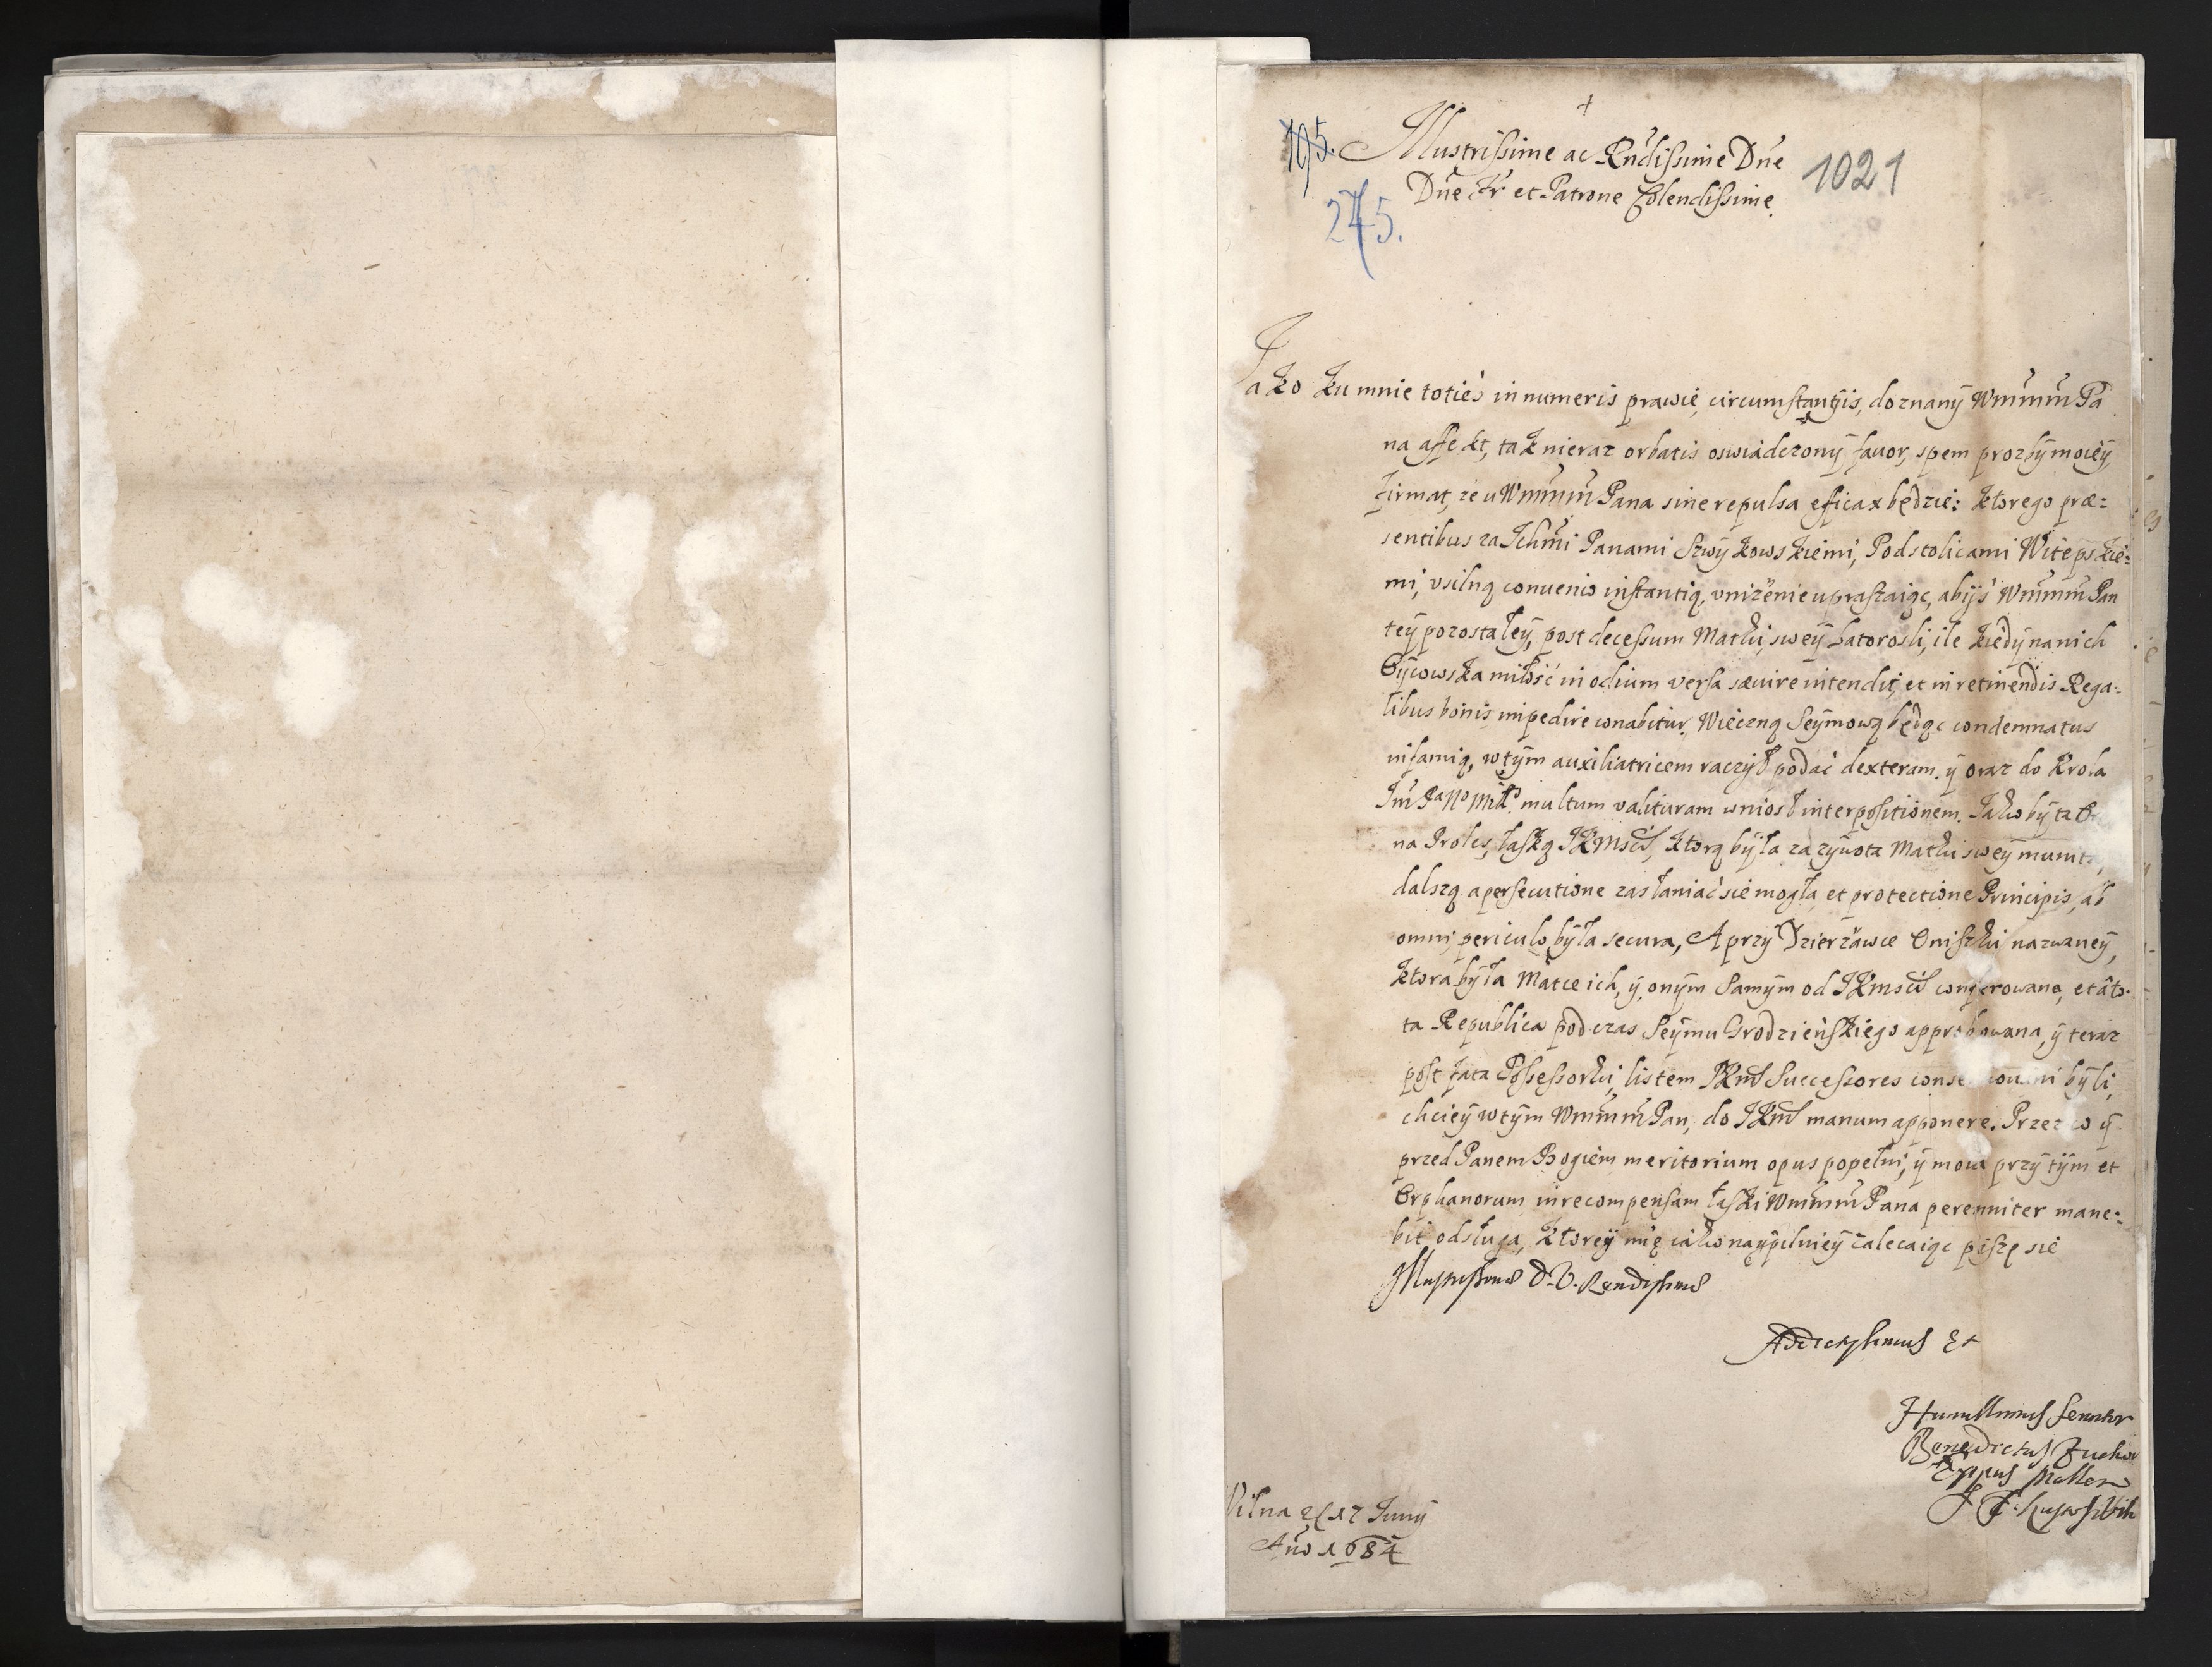 +
195. Illustrissime ac Rndissime Dne
Dne Fr et Patrone Colendissime 1021
245.
Jako ku mnie toties in numeris prawie circumstantijs, doznanÿ Wmmm Pa
na affekt, tak nieraz orbatis oswiadczonÿ favor, spem prozbÿ moieÿ
firmat, ze u Wmmm Pana sine repulsa eficax będzie: ktorego præ=
sentibus za Ichmi Panami Szwÿkowskiemi, Podstolicami Witepskie=
mi, vsilną convenio instantią, vnizenie upraszaiąc, abÿs Wmmm Pan
teÿ pozostałeÿ, post decessum Matki sweÿ Latorosli, ile kiedÿ na nich
Oÿcowska miłosć in odium versa sævire intendit, et in retinendis Rega=
libus bonis impedire conabitur. Wieczną Seÿmową będąc condemnatus
infamią, w tÿm auxiliatricem raczÿł podać dexteram. ÿ oraz do Krola
Im Pa No Mił° multum valituram wniosł interpositionem. Jako bÿ ta
na Proles, łaską JKMsći, ktorą bÿła za zÿwota Matki sweÿ
dalszą a persecutione zasłaniać sie mogła, et protectione Principis, ab
omni periculo bÿła secura, A przÿ Dzierzawce Oniszki nazwaneÿ,
ktora bÿła Matce ich, ÿ onÿm samÿm od JKmsći conferowana, et
ta Republica podczas Seÿmu Grodzieńskiego approbowana, ÿ teraz
post fata Possessorki, listem JKmł Successores bÿli,
chcieÿ w tÿm Wmmm Pan, do JKmł manum apponere. Przez co ÿ
przed Panem Bogiem meritorium opus popełni, ÿ moia przÿ tÿm et
Orphanorum in recompensam łaski Wmmm Pana perenniter mane=
bit odsługa, ktoreÿ mię iako naÿpilnieÿ zalecaiąc piszę sie
Illustrissimæ D. V. Rendissimæ
Addictissimus Et
Humillimus servitor
Benedictus Zuchor
Eppus
Vilna 17 Junÿ
Anno 1684